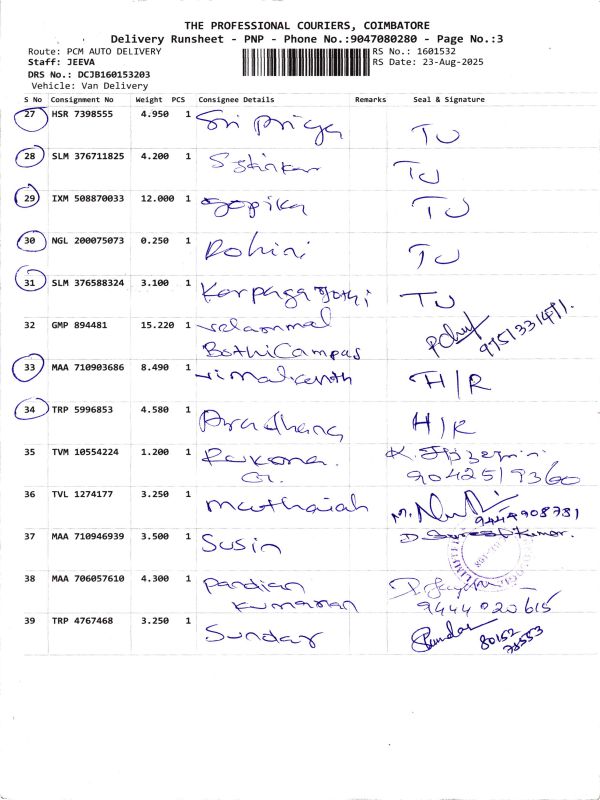 THE PROFESSIONAL COURIERS, COIMBATORE
Delivery Runsheet - PNP - Phone No.:9047080280 - Page No.:3
Route: PCM AUTO DELIVERY
Staff: JEEVA
DRS No.: DCJB160153203
Vehicle: Van Delivery
RS No.: 1601532
RS Date: 23-Aug-2025
S No Consignment No Weight PCS Consignee Details Remarks Seal & Signature
27 HSR 7398555 4.950 1 Sri Priya TU
28 SLM 376711825 4.200 1 TU
29 IXM 508870033 12.000 1 gopika TU
30 NGL 200075073 0.250 1 Rohini TU
31 SLM 376588324 3.100 1 Karpaga Jothi TU
32 GMP 894481 15.220 1 velammal 9751331411.
BothiCampus
33 MAA 710903686 8.490 1 vimalkanth H/R
34 TRP 5996853 4.580 1 Aradhana H/R
35 TVM 10554224 1.200 1 K.
G. 9042519360
36 TVL 1274177 3.250 1 muthaiah M. 9444908781
37 MAA 710946939 3.500 1 Susin D. Sureshkumar.
38 MAA 706057610 4.300 1 Pandian
kumaran 9444020615
39 TRP 4767468 3.250 1 Sundar Sundar 80152
78553